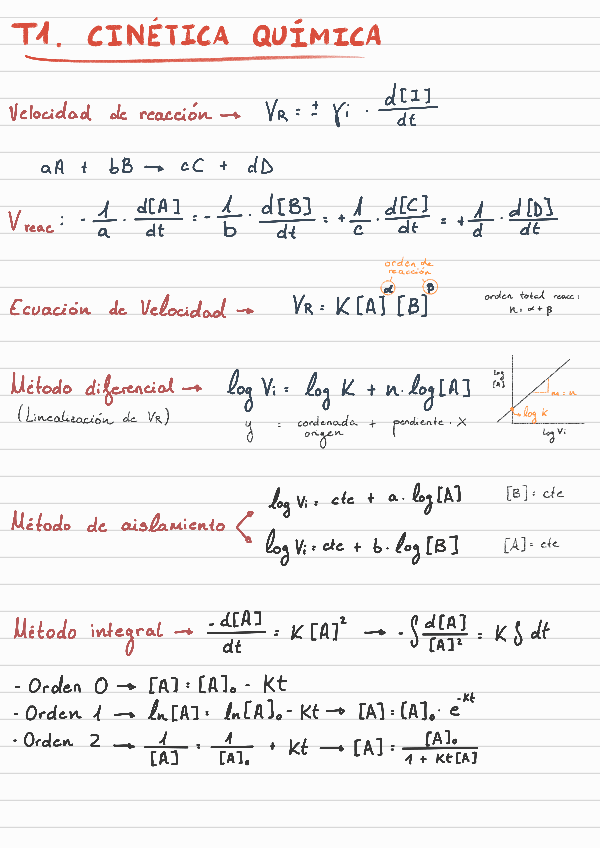 T1. CINÉTICA QUÍMICA
Velocidad de reacción → VR = ± γi · d[I]/dt
aA + bB → cC + dD
Vreac: - 1/a · d[A]/dt = - 1/b · d[B]/dt = + 1/c · d[C]/dt = + 1/d · d[D]/dt
orden de reacción
Ecuación de Velocidad → VR = K[A]^α [B]^β
orden total reacc:
n = α + β
Método diferencial → log Vi = log K + n·log[A]
(Linealización de VR)
y = cordenada origen + pendiente · X
log [A]
m = n
log K
log Vi
Método de aislamiento
log Vi = cte + a·log[A] [B] = cte
log Vi = cte + b·log[B] [A] = cte
Método integral → -d[A]/dt = K[A]² → -∫ d[A]/[A]² = K ∫ dt
- Orden 0 → [A] = [A]₀ - Kt
- Orden 1 → ln[A] = ln[A]₀ - Kt → [A] = [A]₀ · e^-Kt
· Orden 2 → 1/[A] = 1/[A]₀ + Kt → [A] = [A]₀/1 + Kt[A]